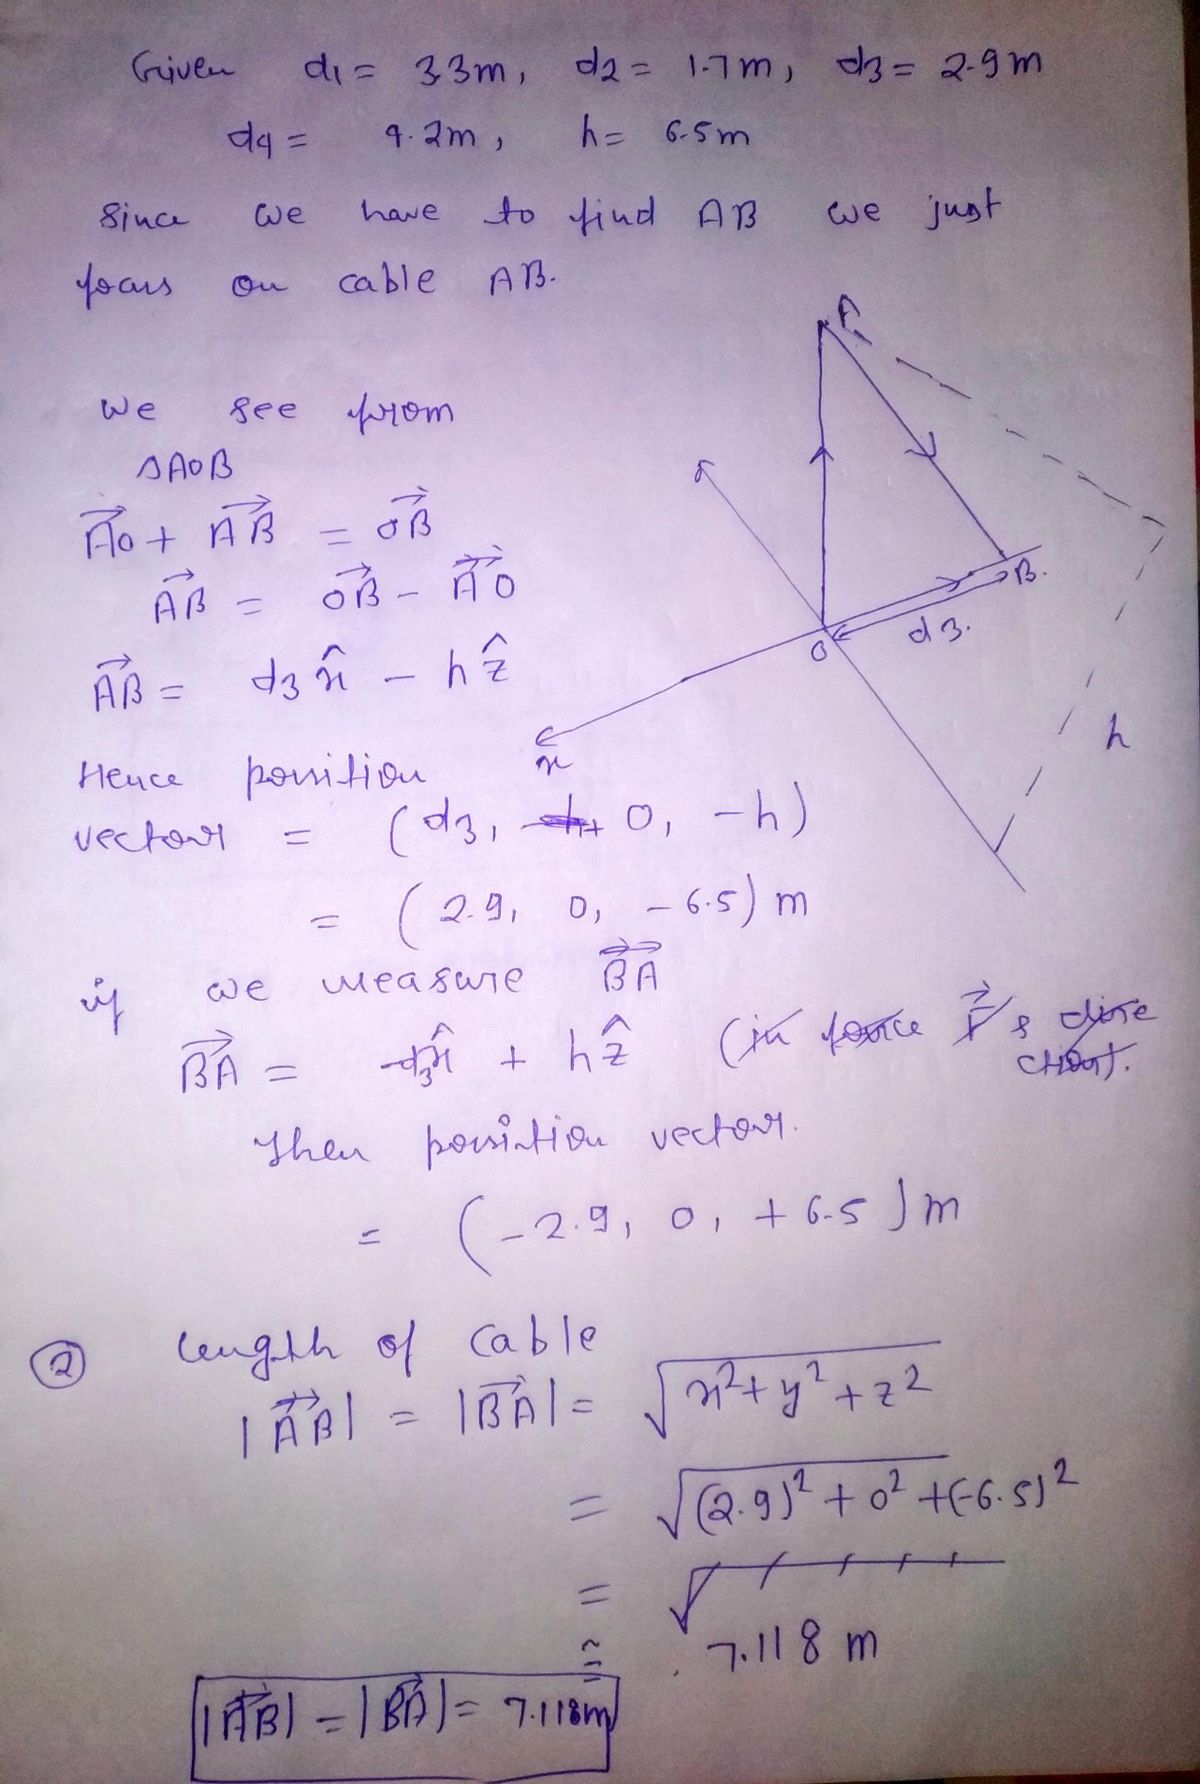 Given d1 = 3.3m, d2 = 1.7m, d3 = 2.9m
d4 = 9.2m, h = 6.5m
Since we have to find AB we just
focus on cable AB.
A
we see from
ΔAOB
AO + AB = OB
AB = OB - AO
AB = d3 x̂ - h ẑ
B.
d3.
O
h
x
Hence position
vector = (d3, 0, -h)
= (2.9, 0, -6.5) m
if we measure BA
BA = -d3 x̂ + h ẑ (in force F's direction).
Then position vector.
= (-2.9, 0, +6.5) m
2 length of cable
|AB| = |BA| = √x²+y²+z²
= √(2.9)²+0²+(-6.5)²
= √
≅ 7.118 m
|AB| = |BA| = 7.118m